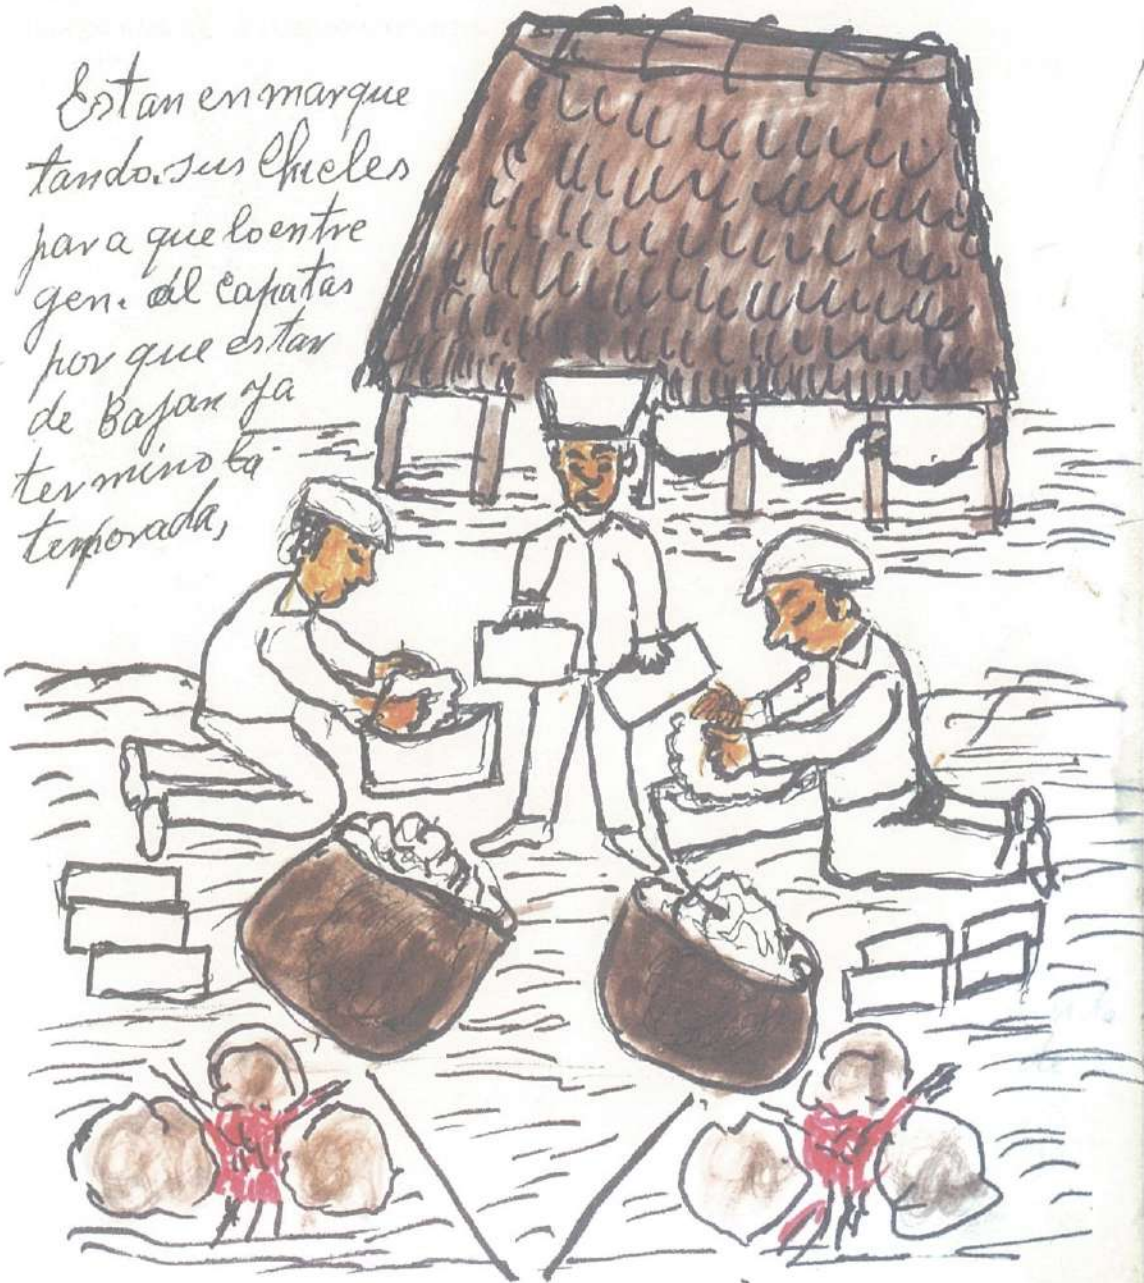 Estan en marque
tando. sus Chicles
para que lo entre
gen. al capatas
por que estan
de Bajan ya
termino la
temporada,